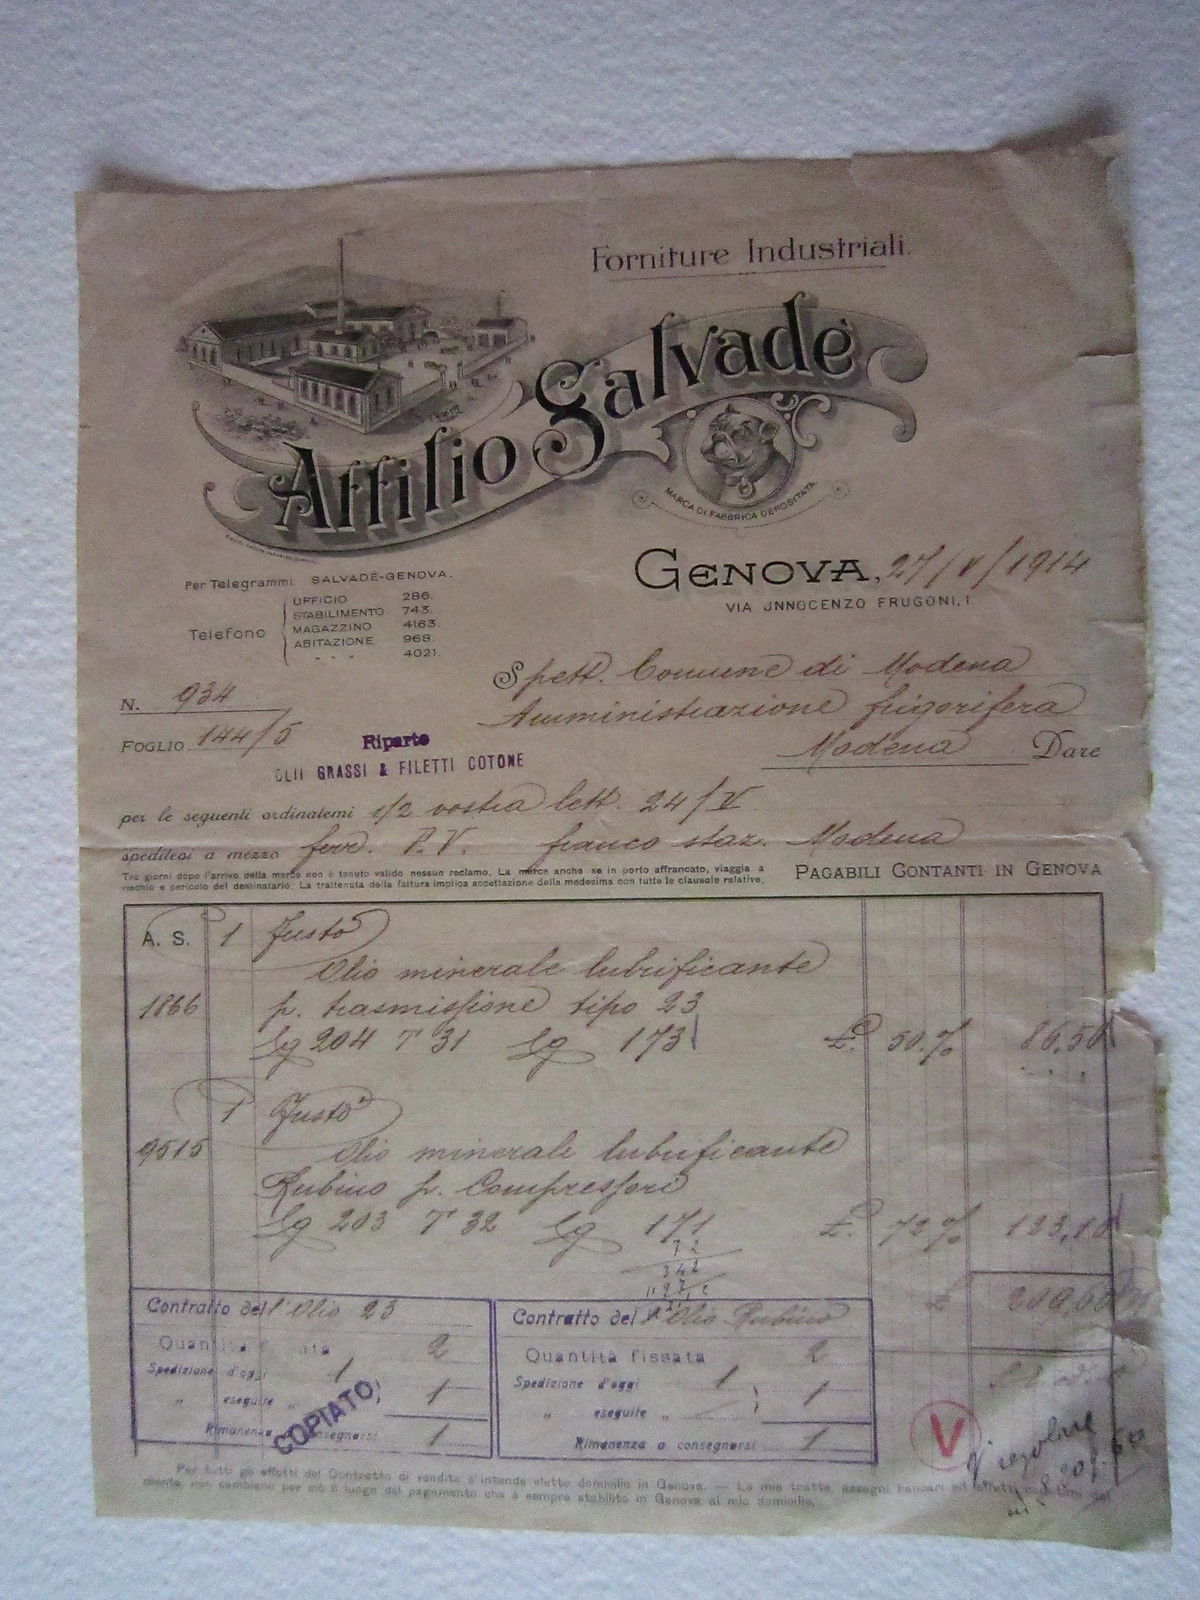 Forniture Industriali.
Attilio Salvadè
MARCA DI FABBRICA DEPOSITATA
GENOVA, 27/V/1914
VIA INNOCENZO FRUGONI, 1
Per Telegrammi SALVADÈ-GENOVA.
Telefono
UFFICIO 286.
STABILIMENTO 743.
MAGAZZINO 4163.
ABITAZIONE 968.
" " " 4021.
Spett. Comune di Modena
Amministrazione frigorifera
Modena Dare
N. 934
FOGLIO 144/5
Riparto
OLII GRASSI & FILETTI COTONE
per le seguenti ordinatemi s/2 vostra lett. 24/V
speditesi a mezzo ferr. P.V. franco staz. Modena
Tre giorni dopo l'arrivo della merce non è tenuto valido nessun reclamo. La merce anche se in porto affrancato, viaggia a
rischio e pericolo del destinatario. La trattenuta della fattura implica accettazione della medesima con tutte le clausole relative.
PAGABILI CONTANTI IN GENOVA
A. S. 1 Fusto
Olio minerale lubrificante
1866 p. trasmissione tipo 23
Cg 204 T 31 Cg 173 £. 50.% 86,50
1 Fusto
9515 Olio minerale lubrificante
Rubino p. Compressori
Cg 203 T 32 Cg 171 £. 72% 123,10
72
342
209,60
Contratto del 1° Olio 23
Quantità fissata 2
Spedizione d'oggi 1
" eseguite " 1
Rimanenza a consegnarsi 1
COPIATO
Contratto del 1° Olio Rubino
Quantità fissata 2
Spedizione d'oggi 1
" eseguite " 1
Rimanenza a consegnarsi 1
V
regolare
Per tutti gli effetti del Contratto di vendita s'intende eletto domicilio in Genova. — Le mie tratte, assegni bancari od effetti
non cambiano per ciò il luogo del pagamento che è sempre stabilito in Genova al mio domicilio.